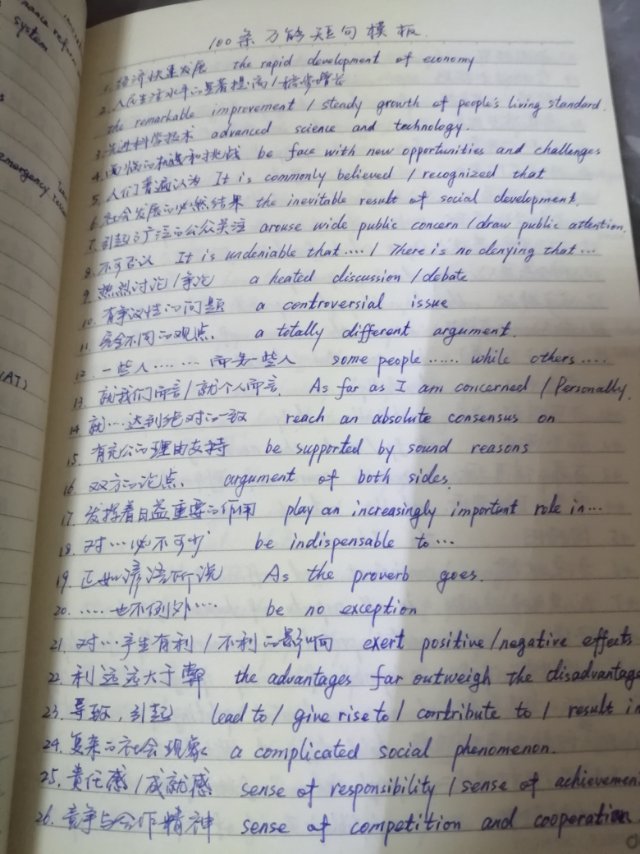 system
100条万能短句模板.
1.经济快速发展 the rapid development of economy
2.人民生活水平的显著提高/稳步增长
the remarkable improvement / steady growth of people's living standard.
3.先进科学技术 advanced science and technology.
4.面临的机遇和挑战 be face with new opportunities and challenges
5.人们普遍认为 It is commonly believed / recognized that
6.社会发展的必然结果 the inevitable result of social development.
7.引起了广泛的公众关注 arouse wide public concern / draw public attention.
8.不可否认 It is undeniable that..../ There is no denying that...
9.热烈讨论/争论 a heated discussion / debate
10.有争议性的问题 a controversial issue
11.完全不同的观点. a totally different argument.
12.一些人……而另一些人 some people ...... while others ....
13.就我们而言/就个人而言. As far as I am concerned / Personally.
14.就…达到绝对的一致 reach an absolute consensus on
15.有充分的理由支持 be supported by sound reasons
16.双方的论点. argument of both sides.
17.发挥着日益重要的作用 play an increasingly important role in...
18.对…必不可少 be indispensable to...
19.正如谚语所说 As the proverb goes.
20.……也不例外…… be no exception
21.对…产生有利/不利的影响 exert positive/negative effects
22.利远远大于弊 the advantages far outweigh the disadvantage
23.导致,引起 lead to / give rise to / contribute to / result in
24.复杂的社会现象 a complicated social phenomenon.
25.责任感/成就感 sense of responsibility / sense of achievemen
26.竞争与合作精神 sense of competition and cooperation